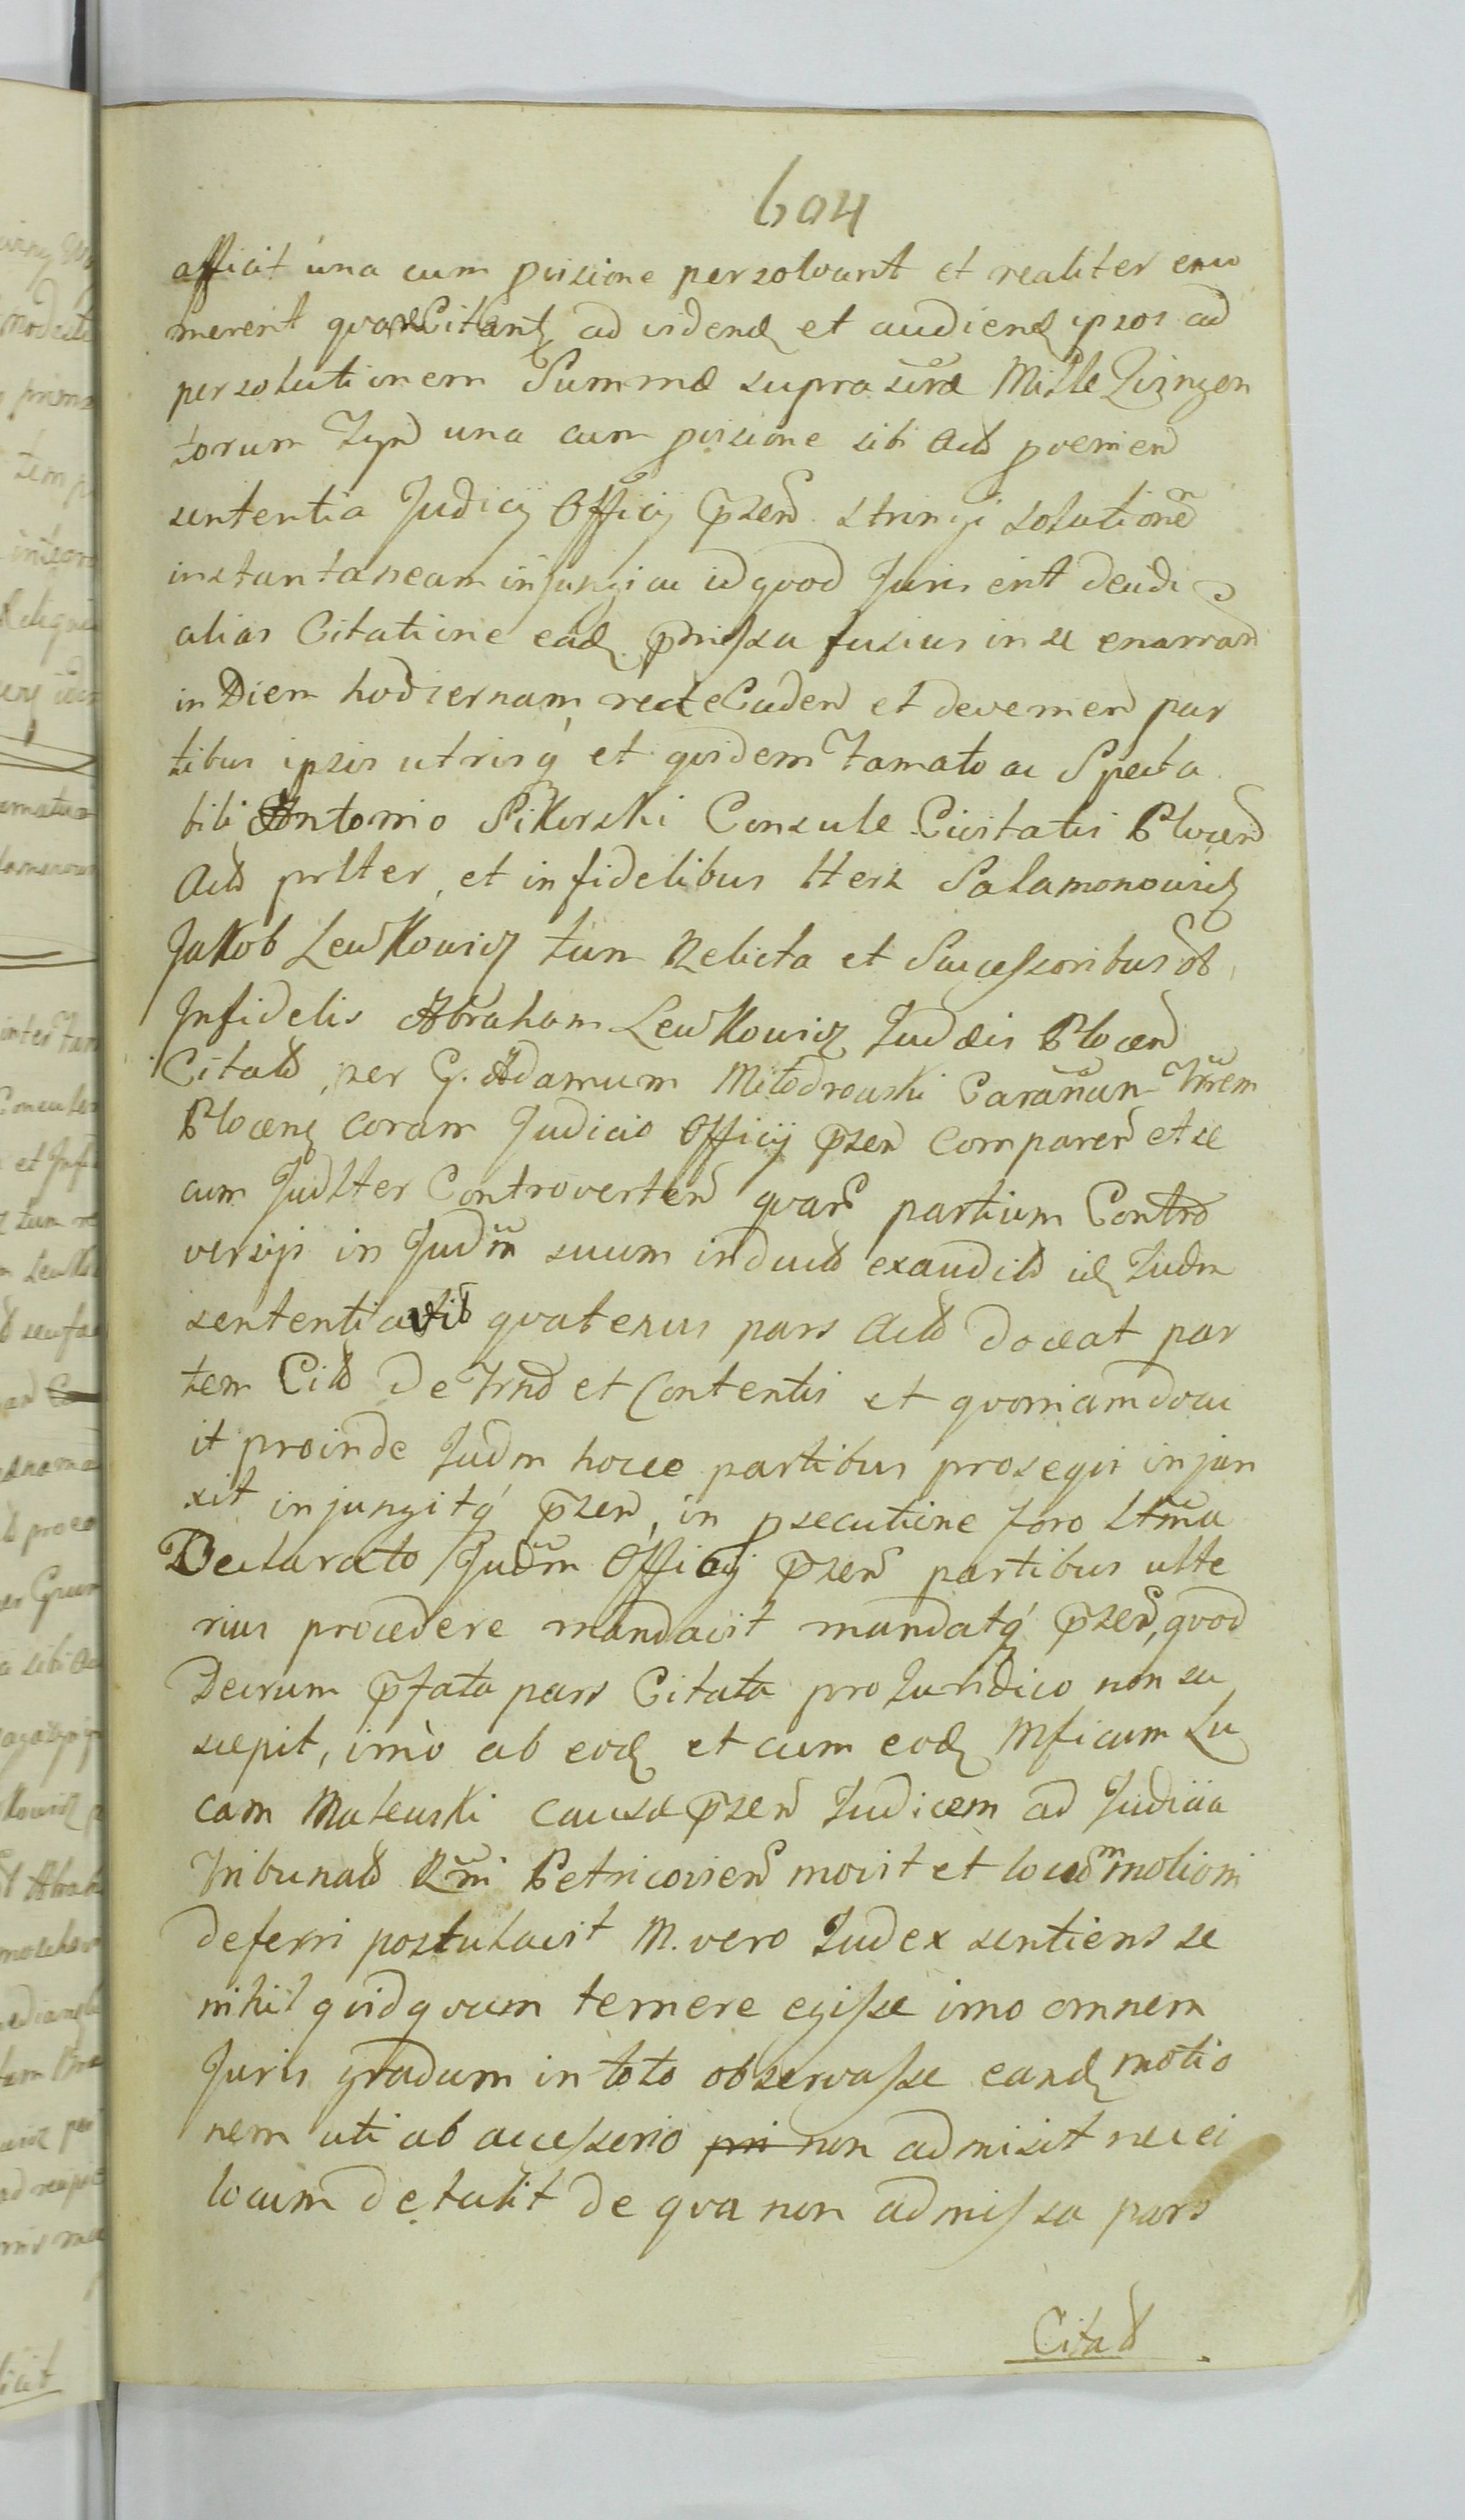 604
afficit una cum pvisione persolvant et realiter enu
merent quare Citant ad videnđ et audienđ ipsos ad
persolutionem Summæ supra scrae Mille Qingen
torum Tynf una cum pvisione sibi Actt pvenien
sententia Judicij Officij pñsen stringi solutionẽ
instantaneam injungi ac id quod Juris erit decidi
alias Citatione eađ pmissa fusius in se enarran
in Diem hodiernam recte Caden et devenien par
tibus ipsis utrisq et quidem Famato ac Specta
bili Antonio Sikorski Consule Civitatis Plocen
Actt prlter, et infidelibus Herz Salamonowicz
Jakob Lewkowicz tum Relicta et Successoribus ol
Infidelis Abraham Lewkowicz Judæis Plocen
Citatt per G. Adamum Mlodrowski Caranan Trrem
Plocen coram Judicio Officij pñsen Comparen et se
cum Judlter Controverten quar partium Contro
versijs in Judm suum inductt exauditt id Judm
sententiavit quatenus pars Actt doceat par
tem Citt De Trno et Contentis et quoniam docu
it proinde Judm hocce partibus prosequi injun
xit injungitq pñsen, in psecutione foro Ltmu
Declarato Judm Officij pñsen partibus ulte
rius procedere mandavit mandatq pñsen, quod
Decrum pfata pars Citata pro Juridico non su
scepit, imò ab eođ et cum eođ Mficum Lu
cam Malewski causæ pñsen Judicem ad Judicia
Tribunatt Rni Petricovien movit et locum motioni
deferri postulavit M. vero Judex sentiens se
nihil quidquam temere egisse imo omnem
Juris gradum in toto observasse eanđ motio
nem uti ab accessorio non admisit nec ei
locum detulit de qua non admissa pars
Citatt